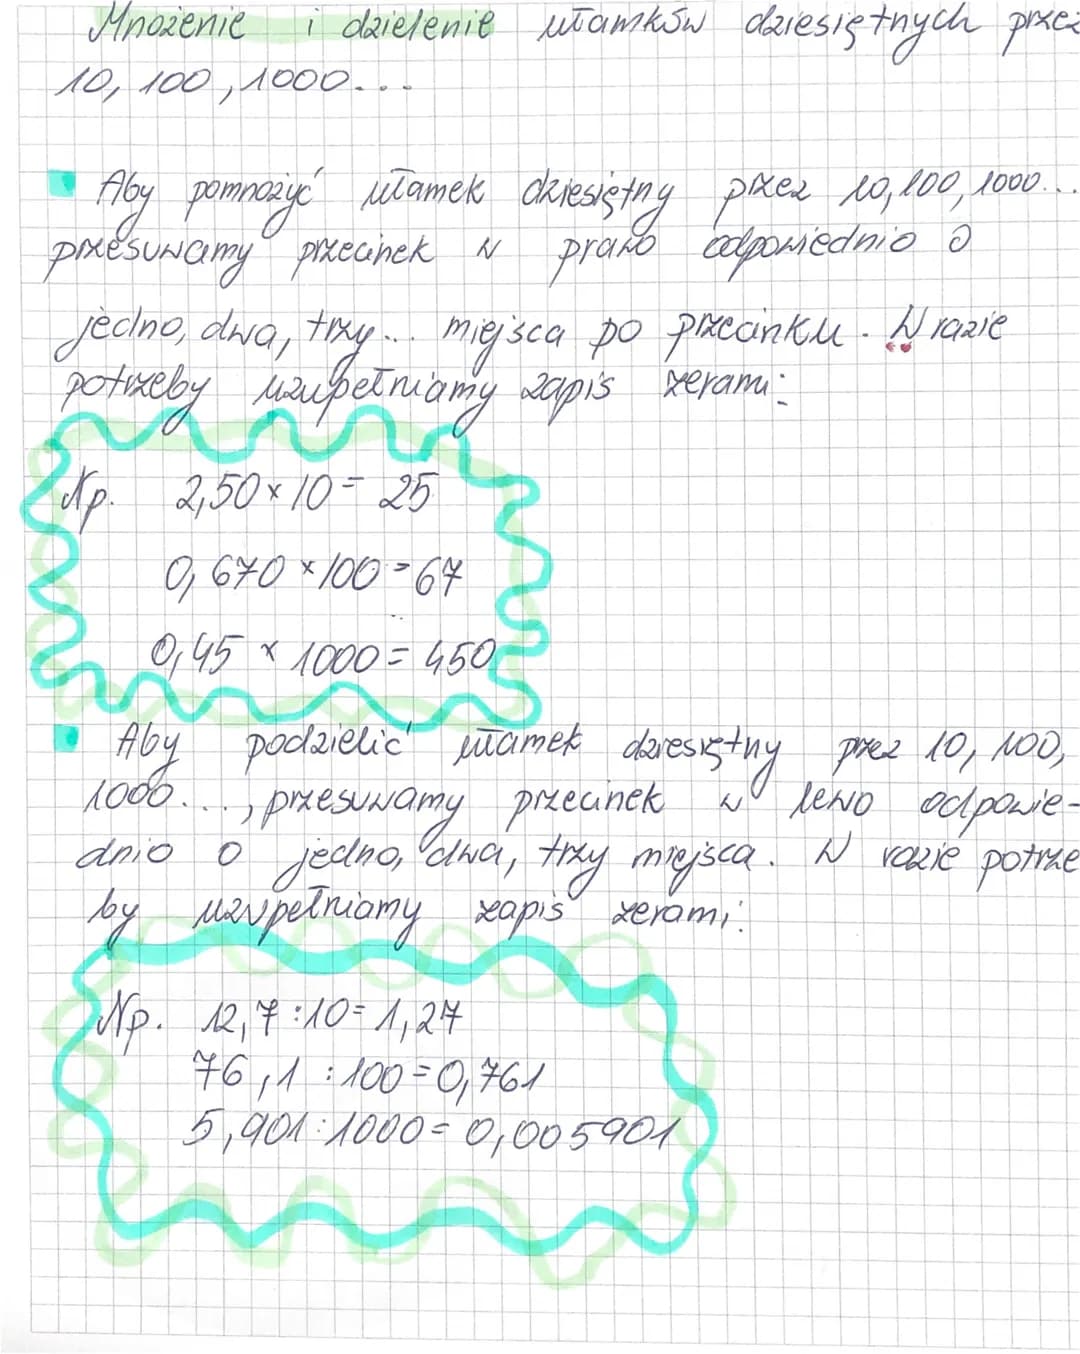 Mnożenie i dzielenie ułamków dziesiętnych przez
10, 100, 1000...
Aby pomnożyć ułamek dziesiętny przez 10, 100, 1000...
przesuwamy przecinek w prawo odpowiednio o
jedno, dwa, trzy... miejsca po przecinku. W razie
potrzeby uzupełniamy zapis zerami:
Np. 2,50 × 10 = 25
0,670 × 100 = 67
0,45 × 1000 = 450
Aby podzielić ułamek dziesiętny przez 10, 100,
1000..., przesuwamy przecinek w lewo odpowie-
dnio o jedno, dwa, trzy miejsca. W razie potrze
by uzupełniamy zapis zerami:
Np. 12,7 : 10 = 1,27
76,1 : 100 = 0,761
5,901 : 1000 = 0,005901